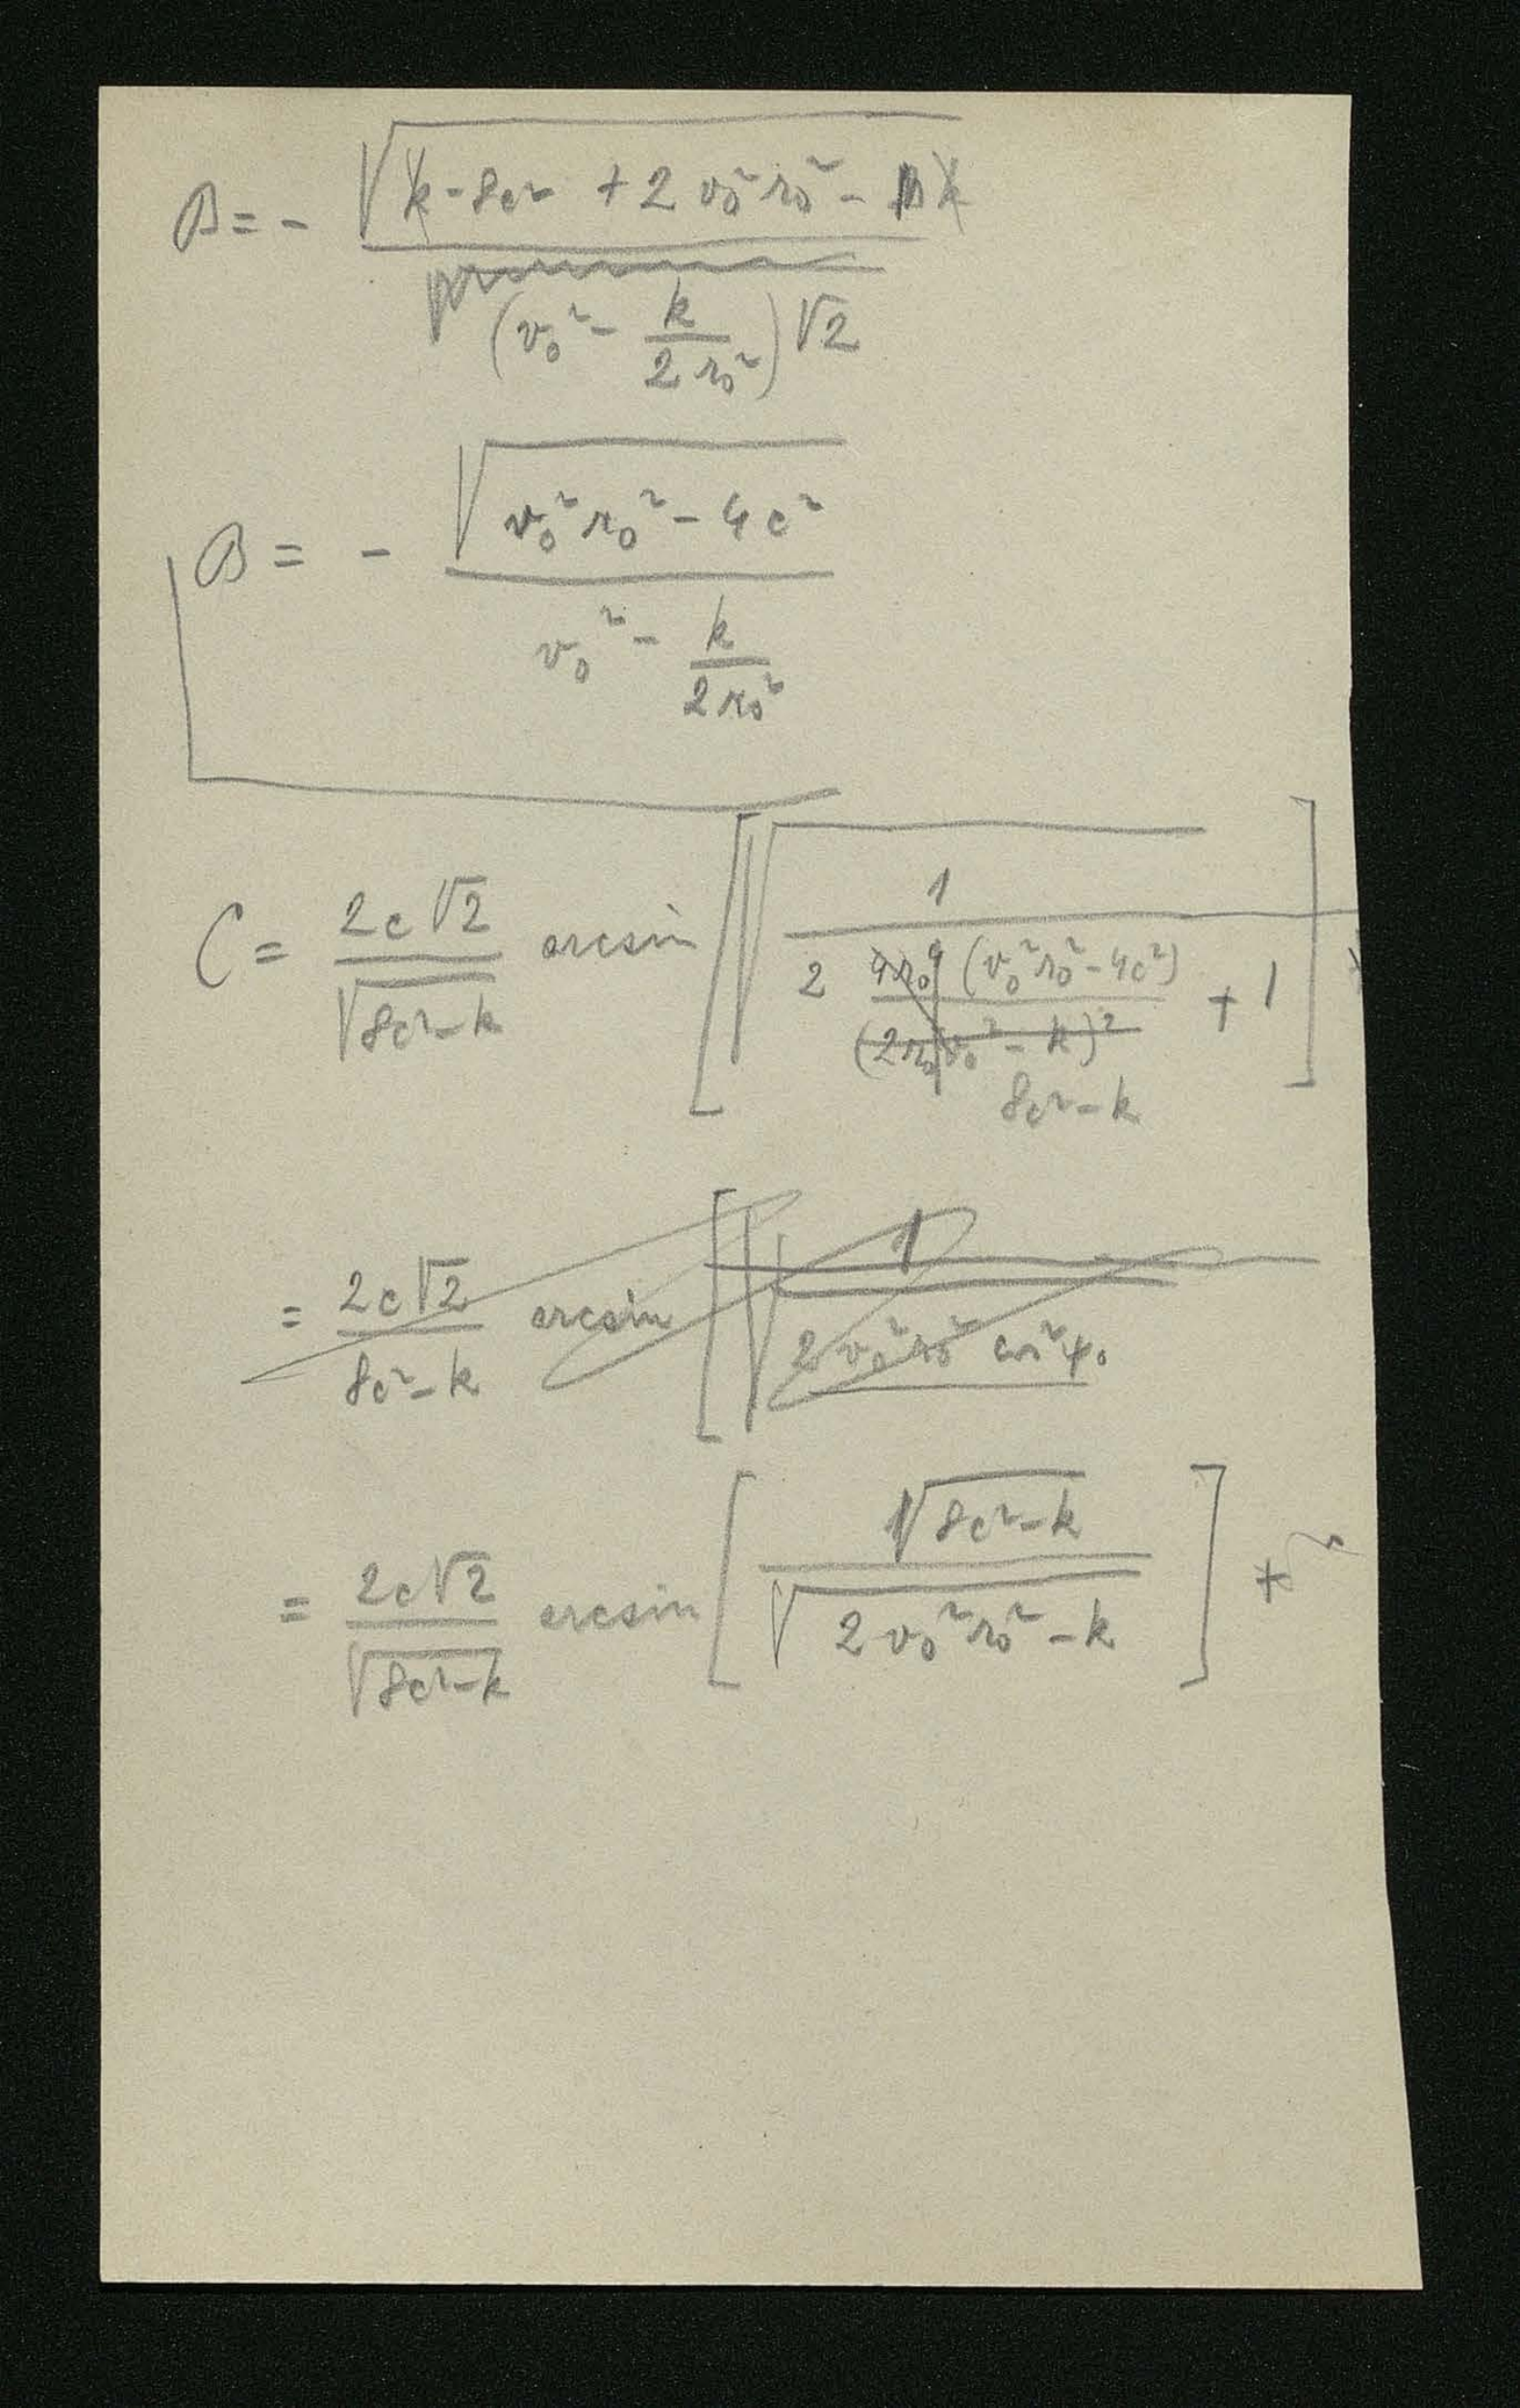 B = - √(k - 8c² + 2 v₀² r₀² - k) / (v₀² - k / 2 r₀²) √2
B = - √(v₀² r₀² - 4c²) / (v₀² - k / 2 r₀²)
C = 2c√2 / √(8c² - k) arcsin [ √( 1 / ( 2 4r₀⁴ (v₀² r₀² - 4c²) / (2r₀² v₀² - k)² 8c² - k + 1 ) ) ]
= 2c√2 / 8c² - k arcsin [ √( 1 / 2 v₀² r₀² cos² φ₀
= 2c√2 / √(8c² - k) arcsin [ √(8c² - k) / √(2 v₀² r₀² - k) ] +